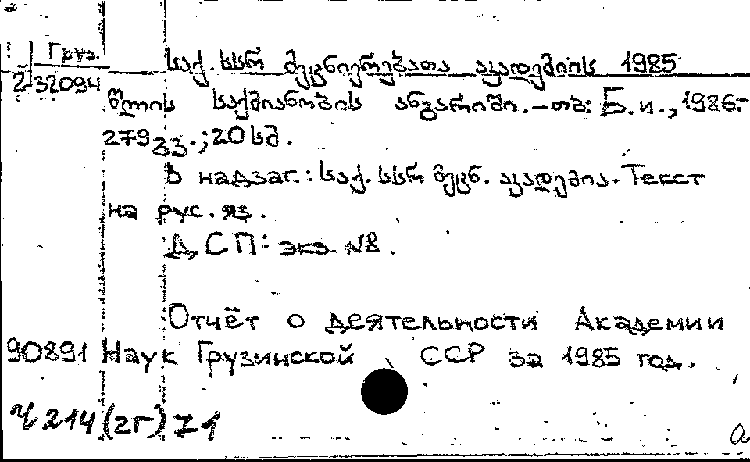 Груз. საქ. სსრ მეცნიერებათა აკადემიის 1985
2-32094
წლის საქმიანობის ანგარიში. – თბ: Б.и., 1986.-
279 გვ.; 20 სმ.
В надзаг.: საქ. სსრ მეცნ. აკადემია. Текст
на рус. яз.
ДСП: экз. №8.
Отчёт о деятельности Академии
90891 Наук Грузинской ССР за 1985 год.
Ч 214(2Г) 71